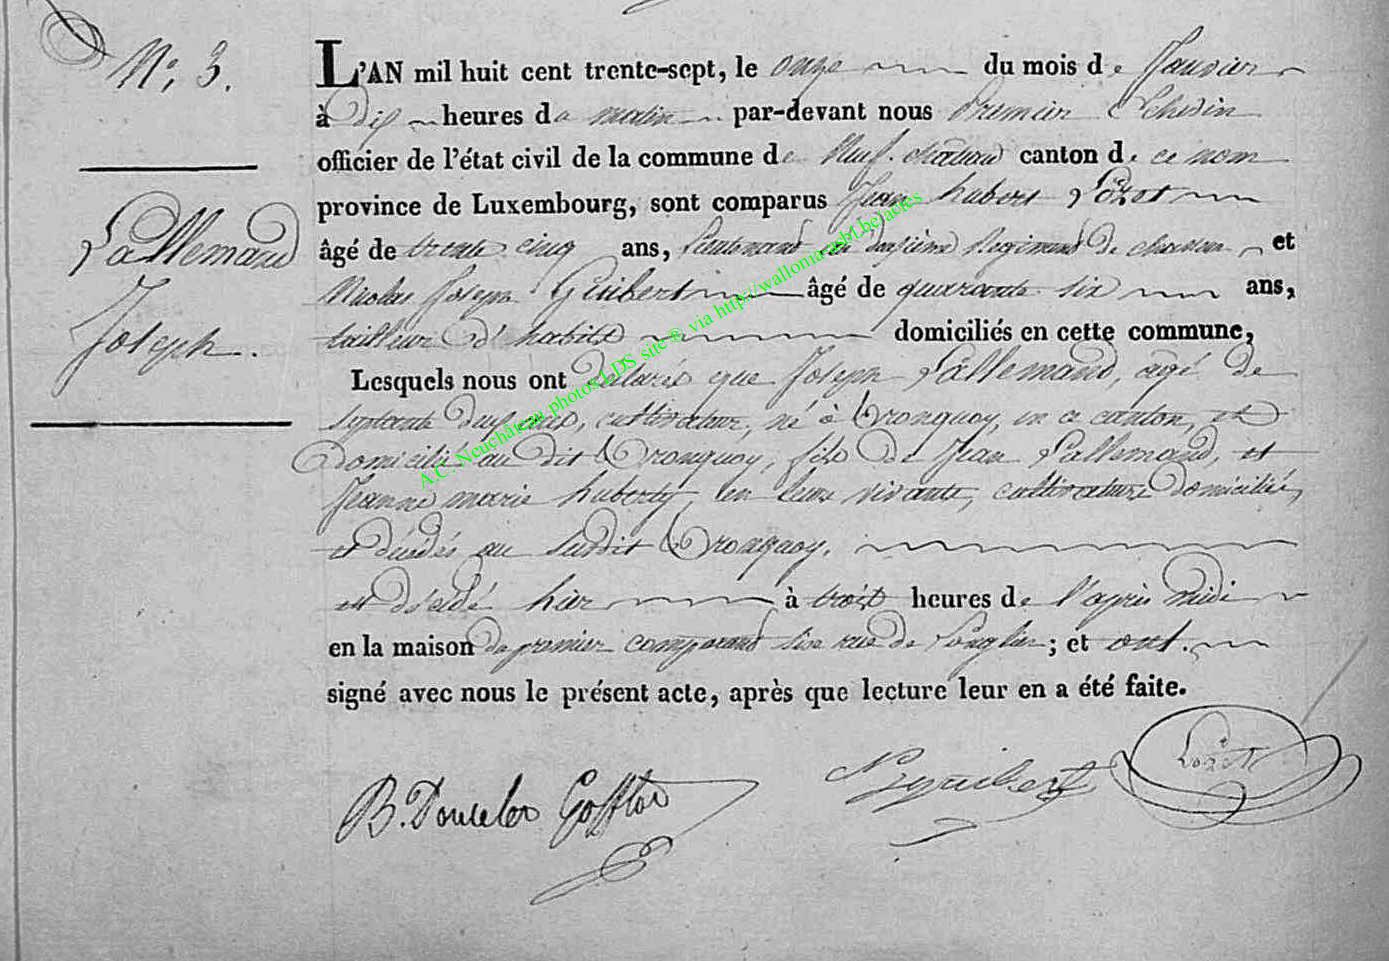 N°. 3.
Lallemand
Joseph.
L'AN mil huit cent trente-sept, le onze du mois de Janvier
à dix heures du matin par-devant nous Premier Echevin
officier de l'état civil de la commune de Neufchâteau canton de ce nom
province de Luxembourg, sont comparus Jean hubert Lozet
âgé de trente cinq ans, Lieutenant au deuxième Regiment de chasseur et
Nicolas Joseph Guibert âgé de quarante six ans,
tailleur d'habits domiciliés en cette commune,
Lesquels nous ont déclaré que Joseph Lallemand, agé de
septante ans, cultivateur, né à Tronquoy, en ce canton, et
Domicilié au dit Tronquoy, fils de Jean Lallemand, et
Jeanne marie huberty, en leur vivante, cultivateurs domiciliés,
et décédés au susdit Tronquoy.
est décédé hier à trois heures de l'après midi
en la maison du premier comparant sise rue de Longlier; et ont.
signé avec nous le présent acte, après que lecture leur en a été faite.
B. Goffloi
N J guibert
Lozet
A.C. Neuchâteau photos LDS site © via http://wallonia.asbl.be/actes